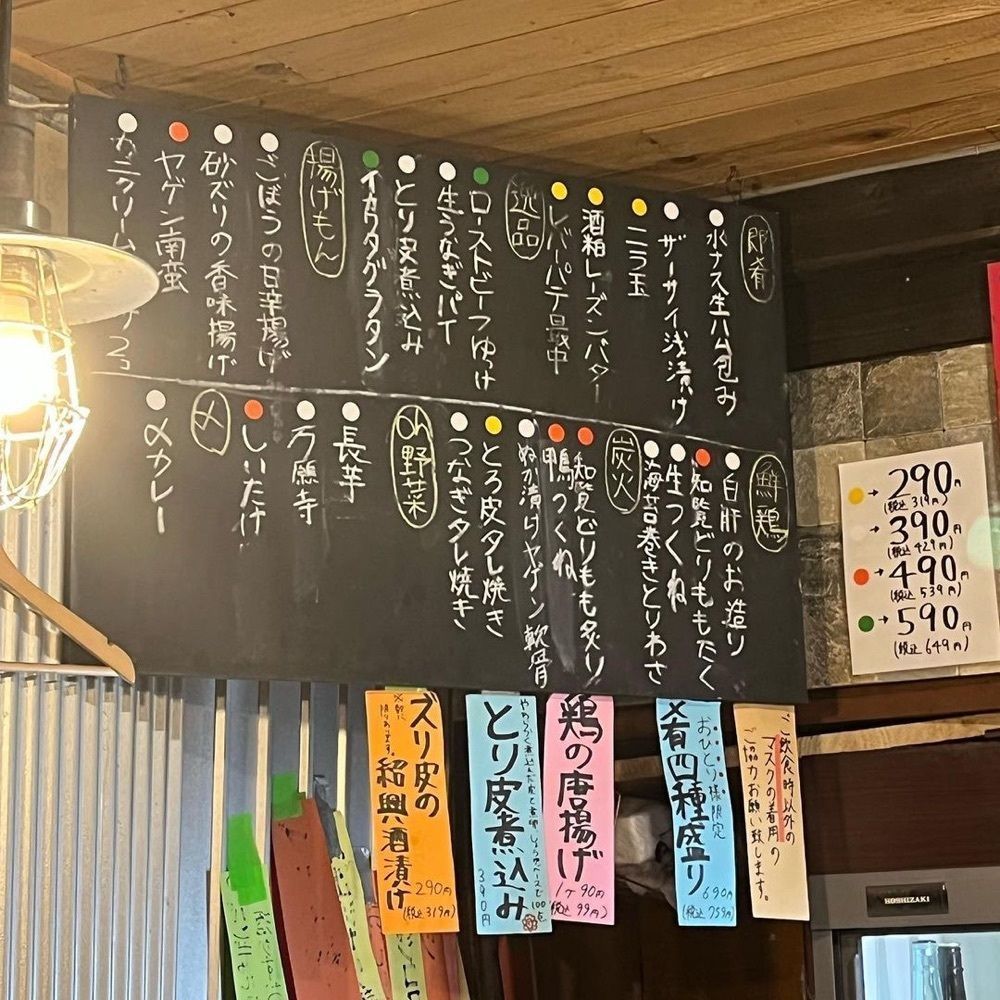 即肴
水ナス生ハム包み
ザーサイ浅漬け
ニラ玉
酒粕レーズンバター
レバーパテ最中
逸品
ローストビーフゆっけ
生うなぎパイ
とり皮煮込み
イカワタグラタン
揚げもん
ごぼうの甘辛揚げ
砂ズリの香味揚げ
ヤゲン南蛮
カニクリーム
2コ
鮮鶏
白肝のお造り
知覧どりももたく
生つくね
海苔巻きとりわさ
炭火
知覧どりもも炙り
鴨つくね
ぬか漬けヤゲン軟骨
とろ皮タレ焼き
つなぎタレ焼き
oh野菜
長芋
万願寺
しいたけ
〆
〆カレー
→290円
(税込319円)
→390円
(税込429円)
→490円
(税込539円)
→590円
(税込649円)
ご飲食時以外の
マスクの着用の
ご協力お願い致します。
おひとり様限定
肴四種盛り
690円
(税込759円)
鶏の唐揚げ
1ヶ90円
(税込99円)
とり皮煮込み
390円
ズリ皮の
紹興酒漬け
290円
(税込319円)
HOSHIZAKI